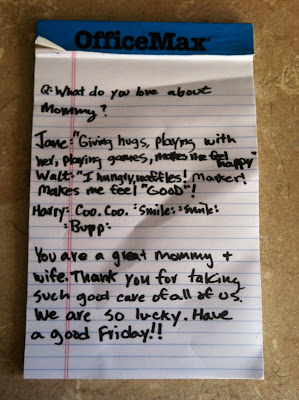 OfficeMax
Q: What do you love about
Mommy?
Jane: "Giving hugs, playing with
her, playing games, makes me feel
happy"
Walt: "I hungry, waffles! Maker!
Makes me feel "GOOD"!
Harry: Coo. Coo. :Smile: :smile:
:Burp:
You are a great mommy +
wife. Thank you for taking
such good care of all of us.
We are so lucky. Have
a good Friday!!